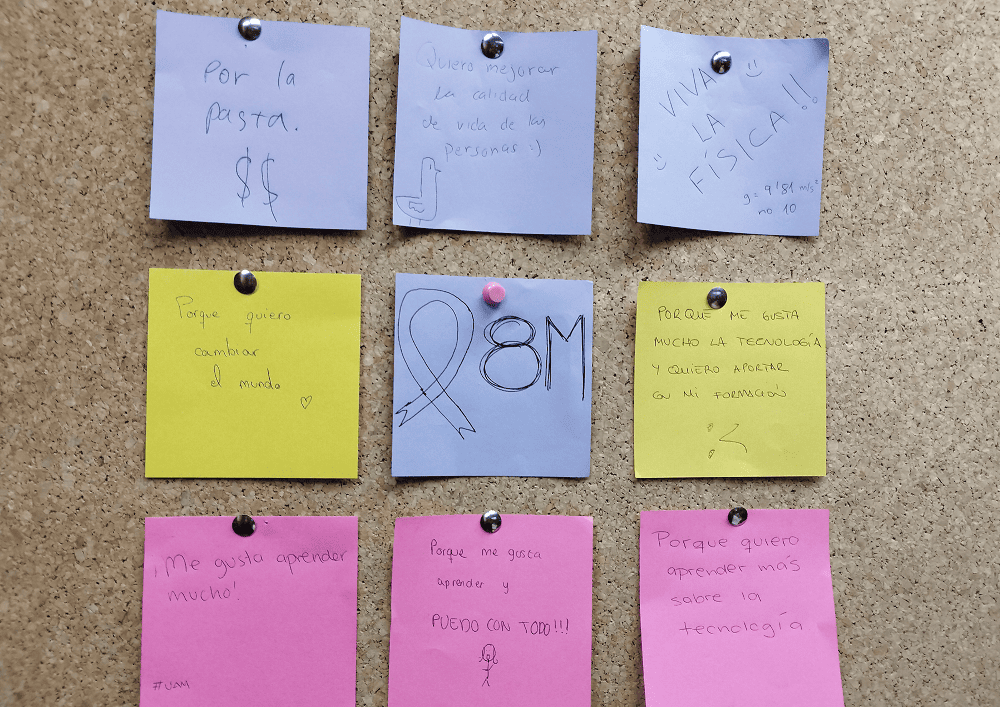 Por la
pasta.
$$
Quiero mejorar
la calidad
de vida de las
personas :)
VIVA :)
LA
:) FÍSICA!!
g= 9'81 m/s²
no 10
Porque quiero
cambiar
el mundo
8M
PORQUE ME GUSTA
MUCHO LA TECNOLOGÍA
Y QUIERO APORTAR
CON MI FORMACIÓN
¡Me gusta aprender
mucho!
#UAM
Porque me gusta
aprender y
PUEDO CON TODO!!!
Porque quiero
aprender más
sobre la
tecnología